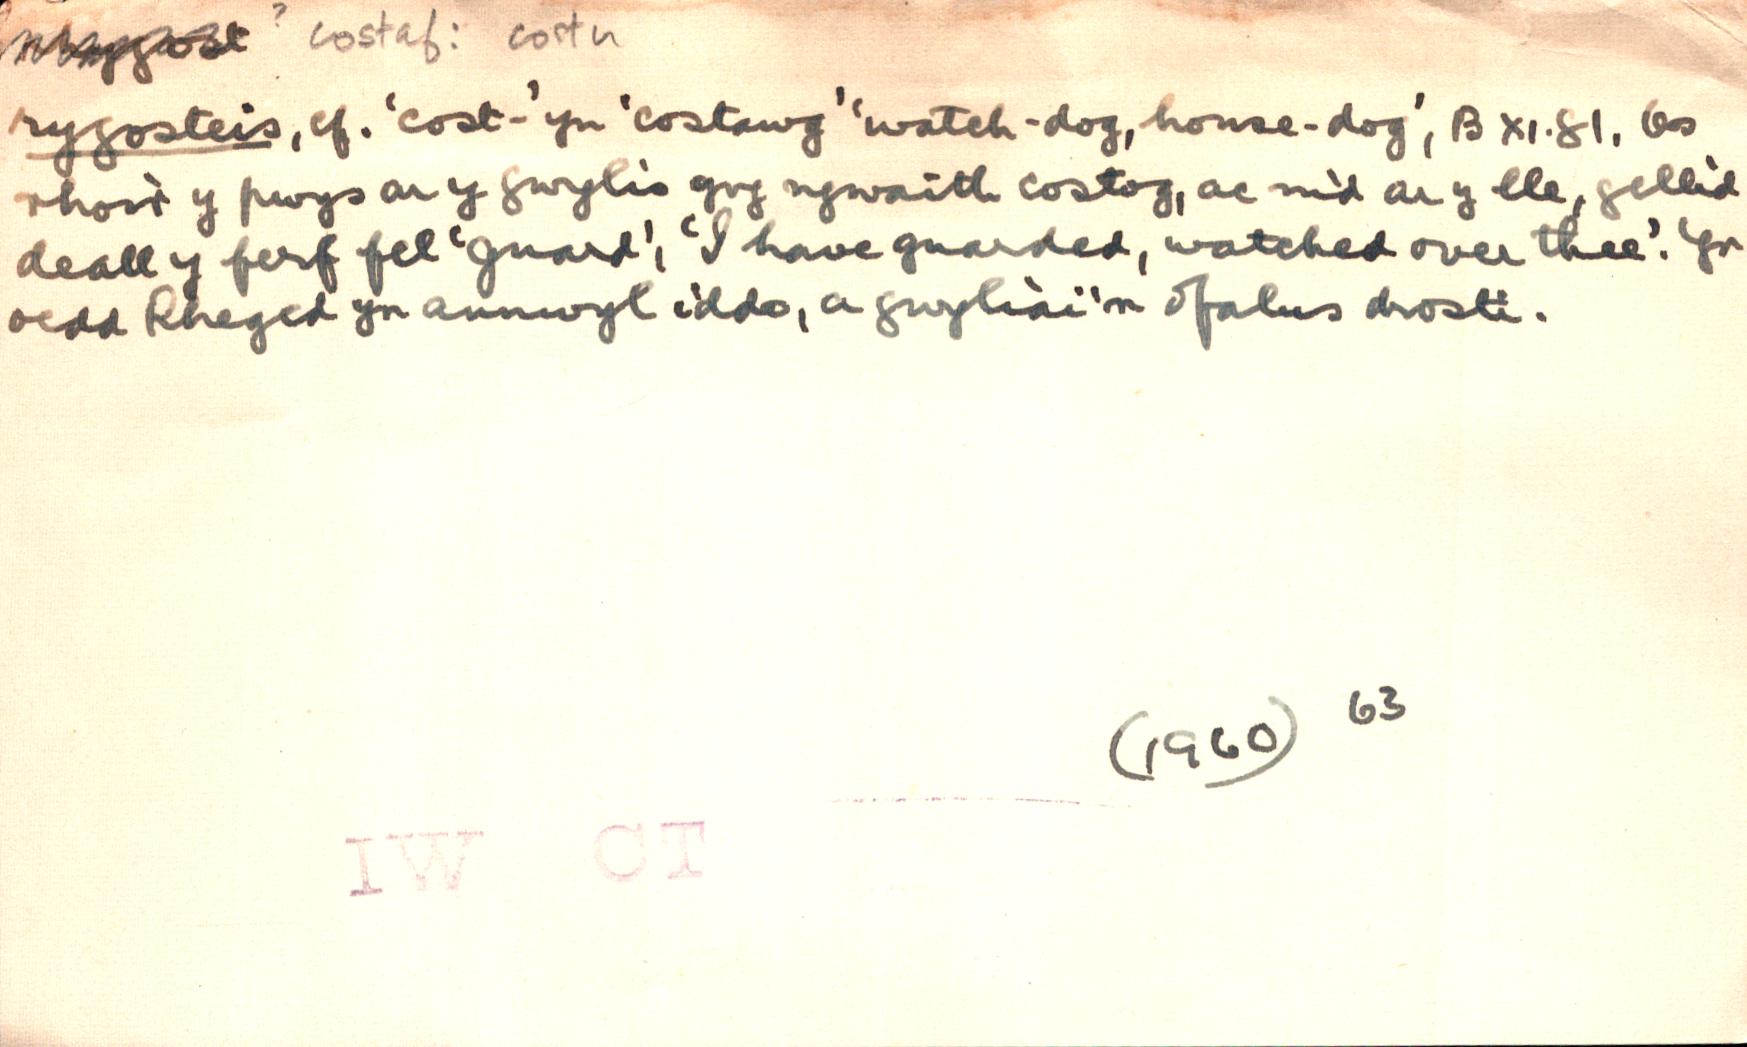 ? costaf: costu
rygosteis, cf. 'cost-' yn 'costawg' 'watch-dog, house-dog', B XI.81. Os
rhoir y pwys ar y gwylio yng ngwaith costog, ac nid ar y lle, gellid
deall y ferf fel 'guard', 'I have guarded, watched over thee'. Yr
oedd Rheged yn annwyl iddo, a gwyliai'n ofalus drosti.
(1960) 63
IW CT